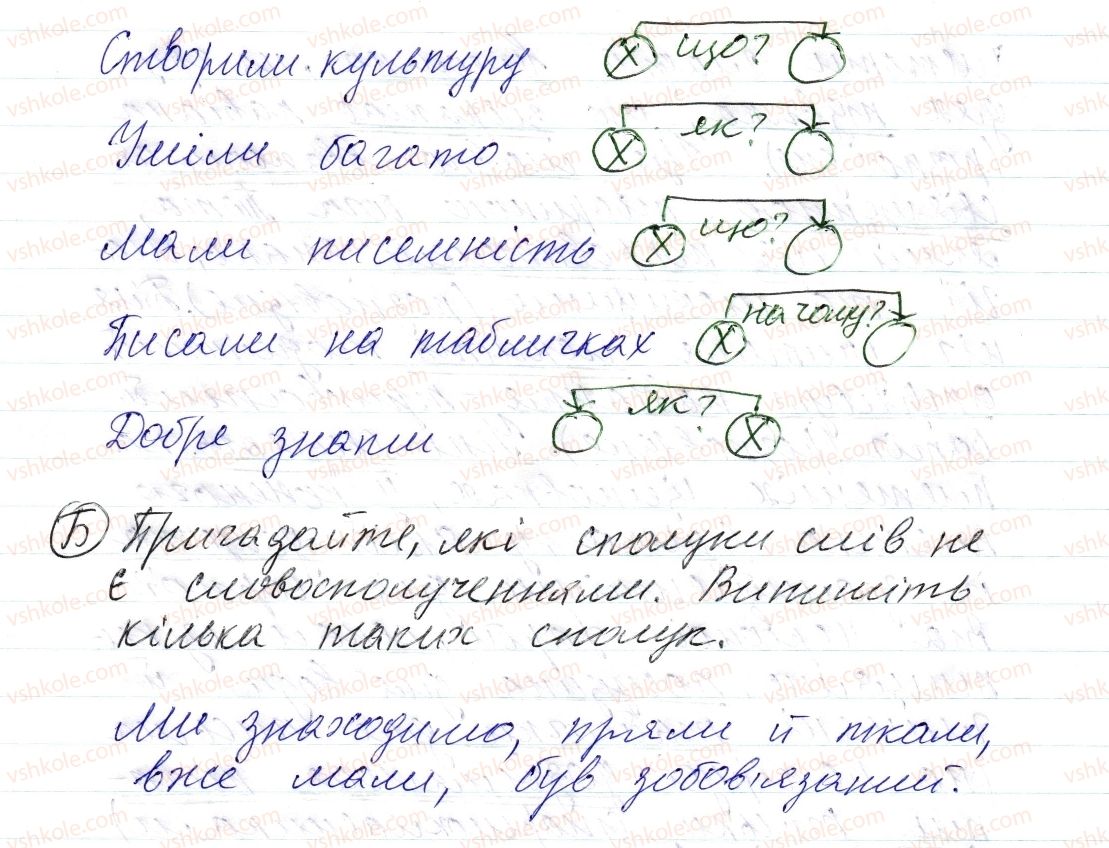 Створили культуру Х що?
Уміли багато Х як?
Мали писемність Х що?
Писали на табличках Х на чому?
Добре знали як? Х
Б Пригадайте, які сполуки слів не
є словосполученнями. Випишіть
кілька таких сполук.
Ми знаходимо, пряли й ткали,
вже мали, був зобов'язаний.